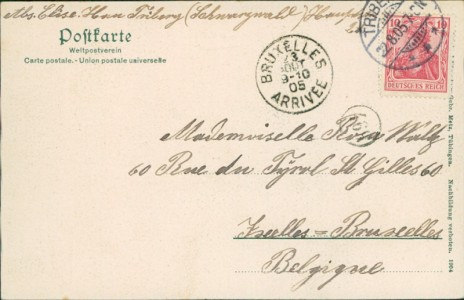 Abs. Elise Haas Triberg (Schwarzwald) Hauptstr.
Postkarte
Weltpostverein
Carte postale. - Union postale universelle
BRUXELLES
23
AOUT
9-10
05
ARRIVÉE
TRIBE
10 10
DEUTSCHES REICH
Mademoiselle Rosa Walz
60 Rue du Tyrol St Gilles 60
Ixelles = Bruxelles
Belgique
Metz, Tübingen. Nachbildung verboten. 1904